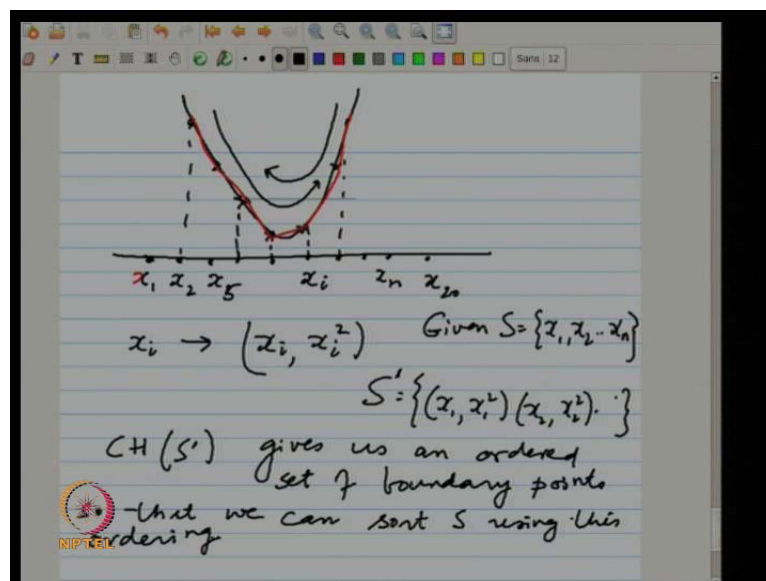 T
Sans 12
x₁ x₂ x₅ xᵢ xₙ x₂₀
xᵢ → (xᵢ, xᵢ²) Given S = {x₁, x₂ .. xₙ}
S' = {(x₁, x₁²) (x₂, x₂²) . . }
CH (S') gives us an ordered
set of boundary points
that we can sort S using this
ordering
NPTEL